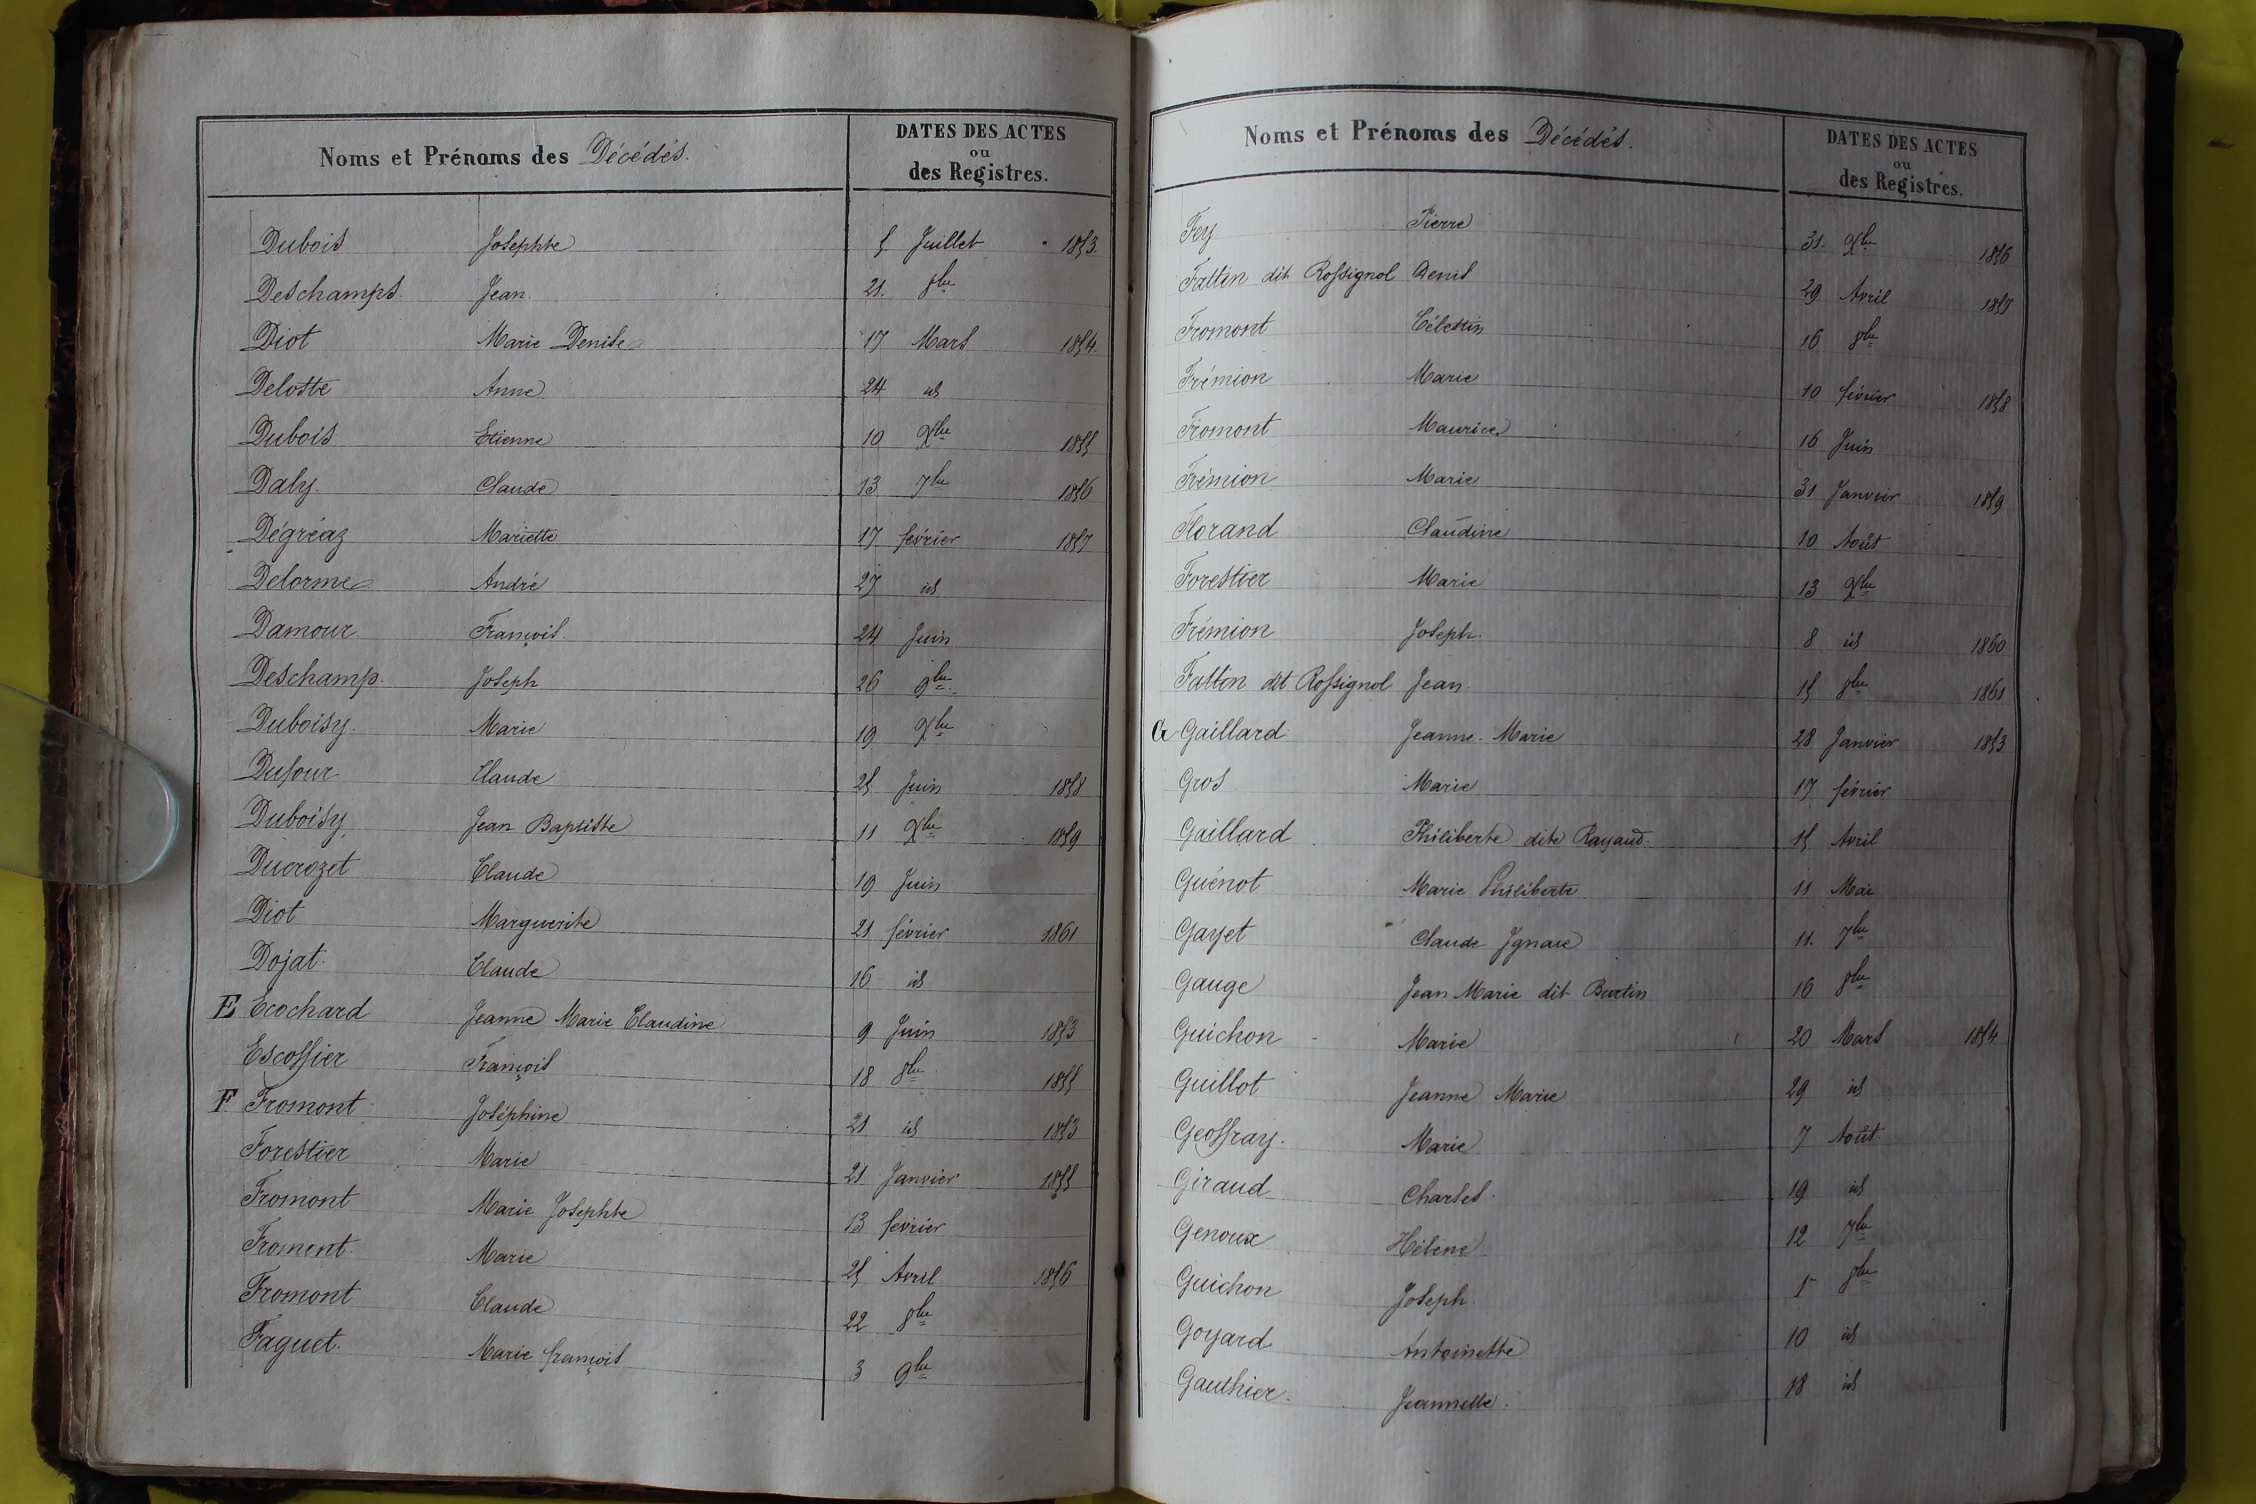 Noms et Prénoms des Décédés.
DATES DES ACTES
ou
des Registres.
Dubois Josephte 5 Juillet 1853.
Deschamps. Jean. 21. 8bre
Diot Marie Denise 17 Mars 1854.
Delotte Anne 24 id
Dubois Etienne 10 Xbre 1855
Daly. Claude 13 7bre 1856
Dégréaz Mariette 17 février 1857
Delorme André 27 id
Damour François 24 Juin
Deschamp. Joseph 26 9bre
Duboisy. Marie 19 Xbre
Dufour Claude 25 Juin 1858
Duboisy Jean Baptiste 11 Xbre 1859
Ducrozet Claude 19 Juin
Diot Marguerite 21 février 1861
Dojat. Claude 16 id
E Ecochard Jeanne Marie Claudine 9 Juin 1853
Escoffier François 18 8bre 1855
F Fromont Joséphine 21 id 1853
Forestier Marie 21 Janvier 1855
Fromont Marie Josephte 13 fevrier
Froment. Marie 25 Avril 1856
Fromont Claude 22 8bre
Faguet. Marie françois 3 9bre
Noms et Prénoms des Décédés.
DATES DES ACTES
ou
des Registres.
Fey Pierre 31. Xbre 1856
Fattin dit Rossignol Denis 29 Avril 1857
Fromont Célestin 16 8bre
Frémion Marie 10 février 1858
Fromont Maurice 16 Juin
Frémion Marie 31 Janvier 1859
Florand Claudine 10 Août
Forestier Marie 13 Xbre
Frémion Joseph. 8 id 1860
Fattin dit Rossignol Jean 15 8bre 1861
G Gaillard Jeanne-Marie 28 Janvier 1853
Gros Marie 17 février
Gaillard Philiberte dite Rayaud. 15 Avril
Guénot Marie Philiberte 11 Mai
Gayet Claude Ignace 11. 7bre
Gauge Jean Marie dit Burtin 16 8bre
Guichon Marie 20 Mars 1854
Guillot Jeanne Marie 29 id
Geoffray. Marie 7 Août
Giraud Charles. 19 id
Genoux Hélène 12 7bre
Guichon Joseph. 1er 8bre
Goyard Antoinette 10 id
Gauthier. Jeannette. 18 id